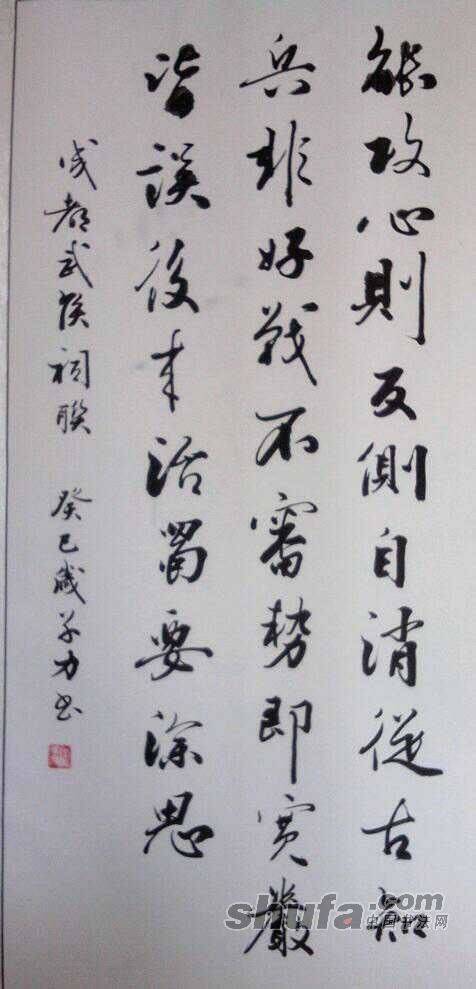 能攻心則反側自消從古知
兵非好戰不審勢即寬嚴
皆誤後来治蜀要深思
成都武侯祠聯 癸巳歲力书
shufa.com
中国书法网